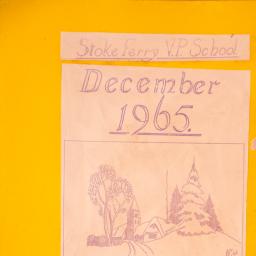 Stoke Ferry V.P. School
December
1965.